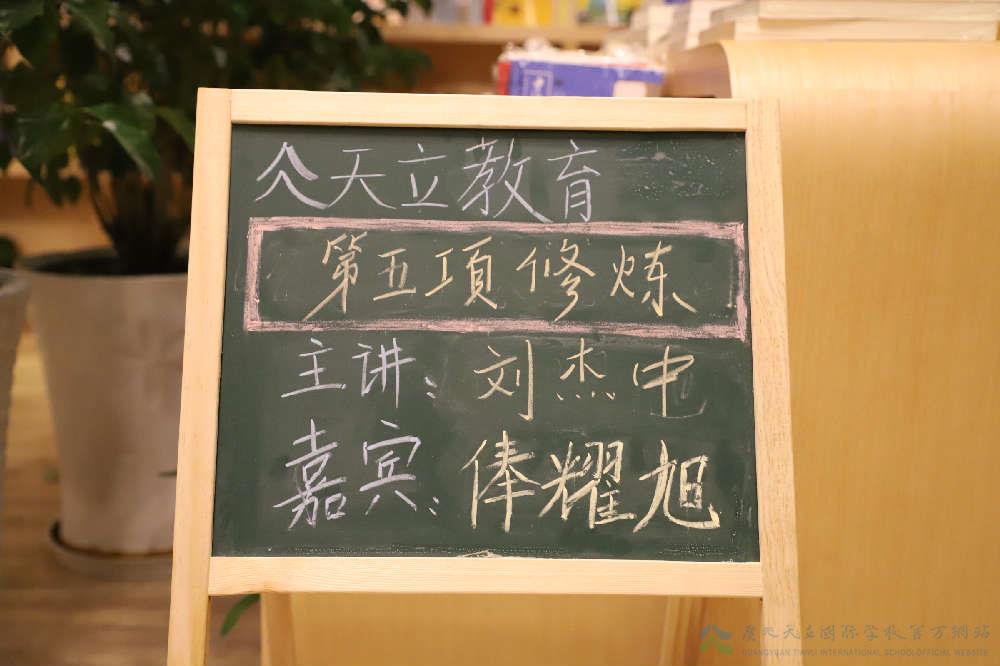 天立教育
第五項修炼
主讲：刘杰中
嘉宾：俸耀旭
广元天立國际学校官方網站
GUANGYUAN TIANLI INTERNATIONAL SCHOOL OFFICIAL WEBSITE